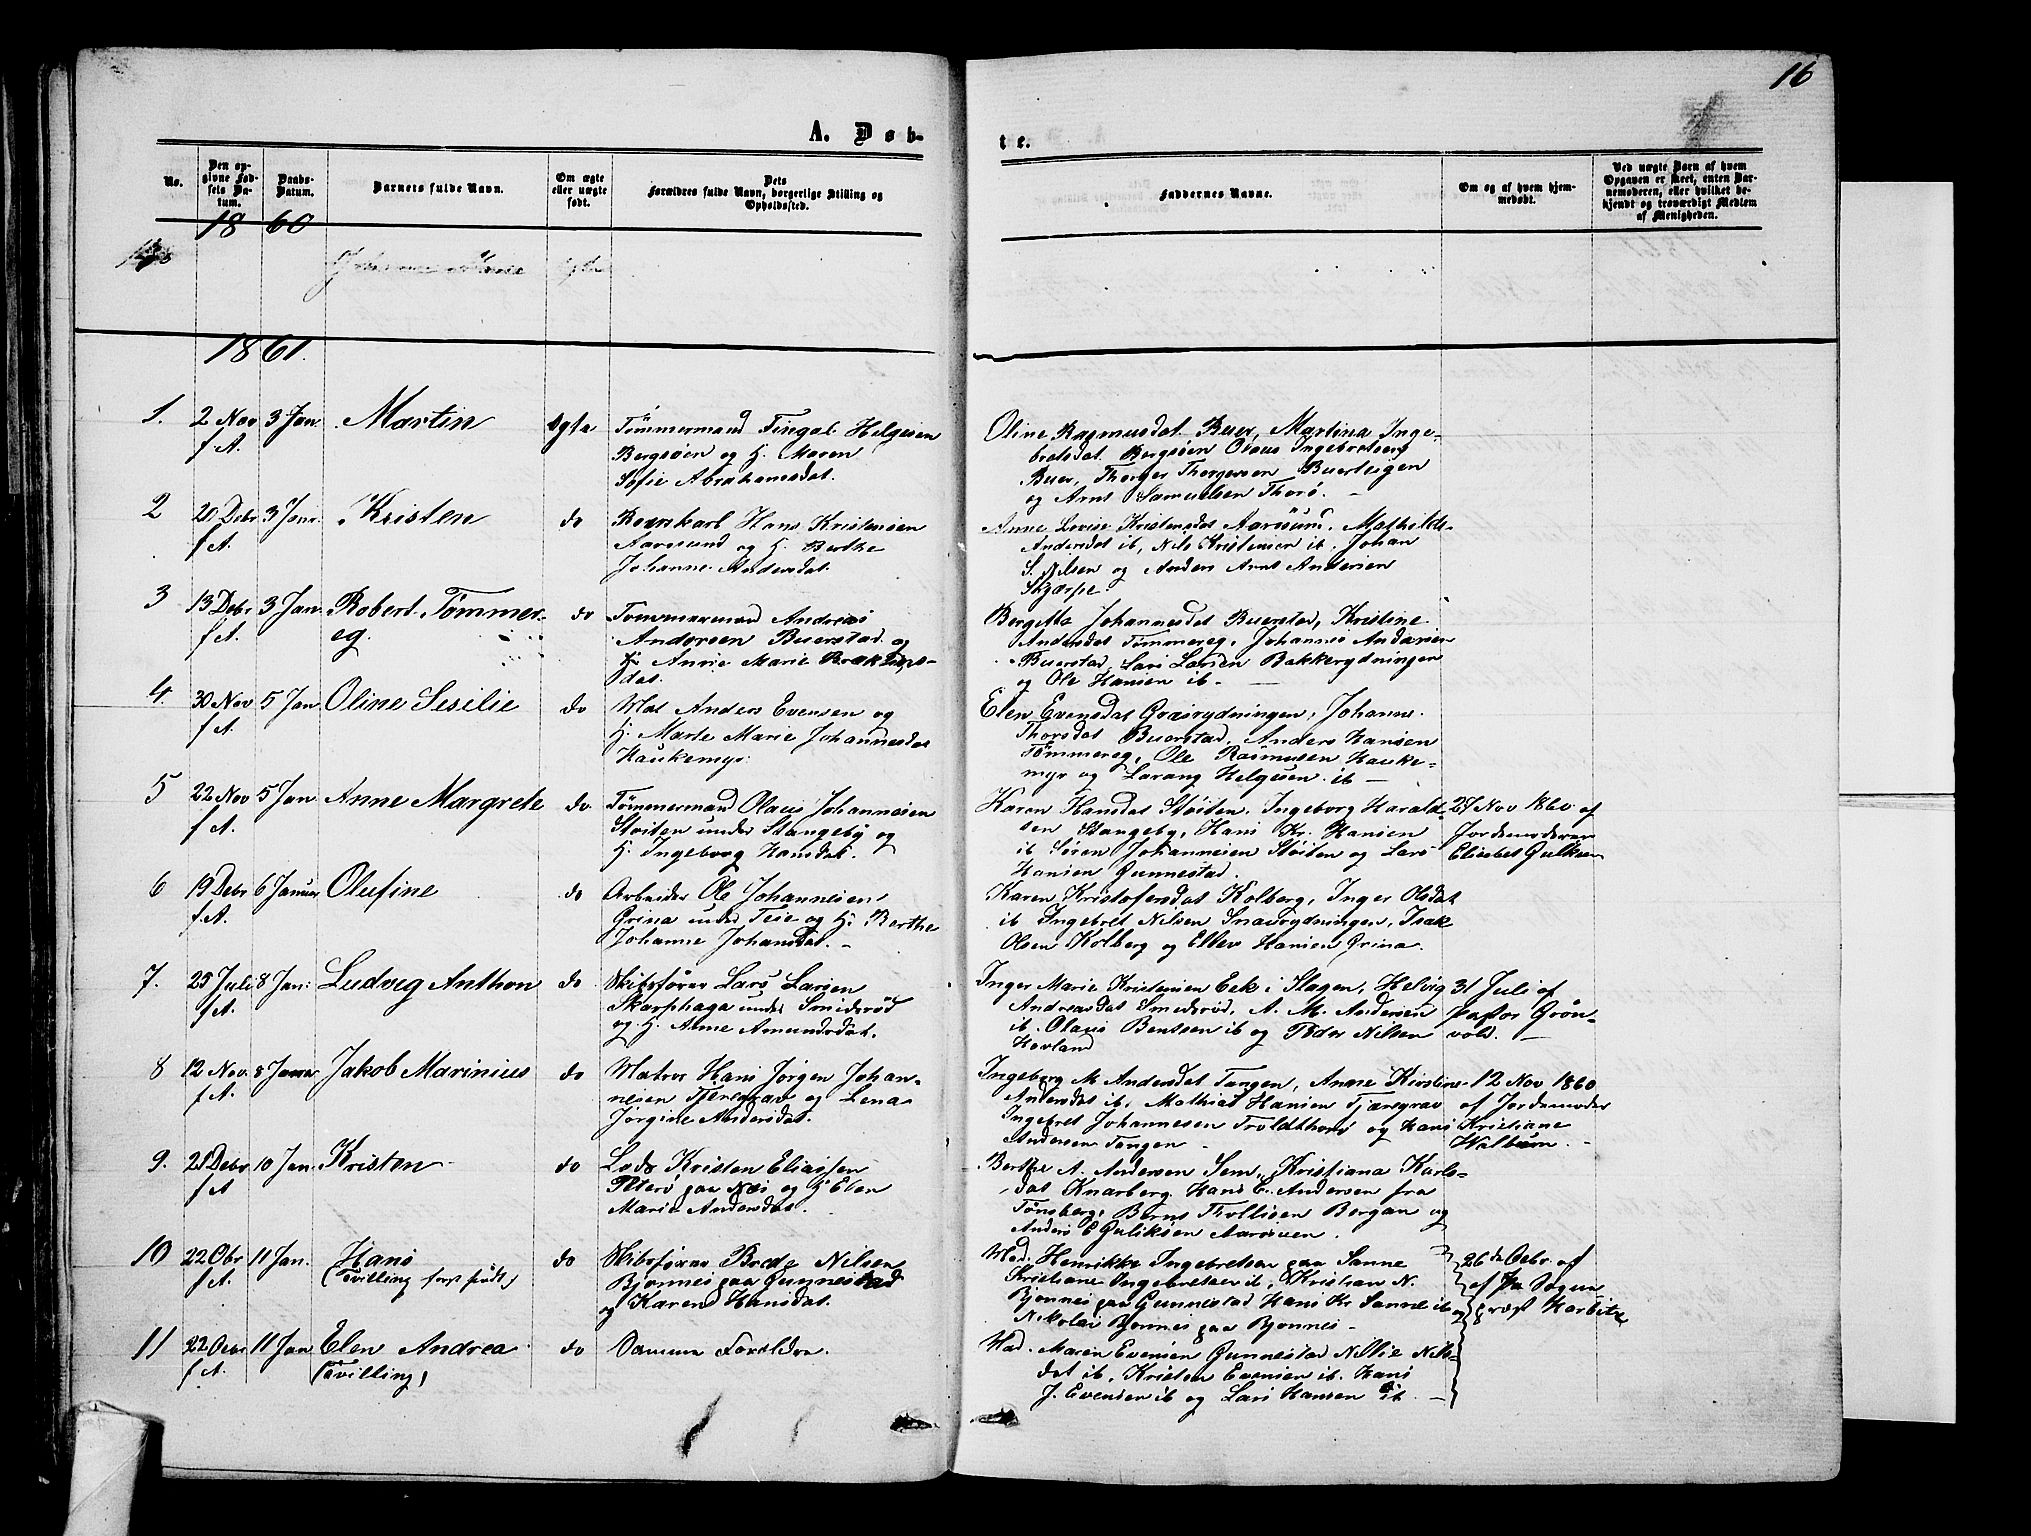 16
A. Døb-
te.
No.
Den op-
givne Fød-
sels Da-
tum.
Daabs-
Datum.
Barnets fulde Navn.
Om ægte
eller uægte
født.
Dets
Forældres fulde Navn, borgerlige Stilling og
Opholdssted.
Faddernes Navne.
Om og af hvem hjem-
medøbt.
Ved uægte Børn af hvem
Opgaven er skeet, enten Bar-
nemoderen, eller hvilket be-
kjendt og troværdigt Medlem
af Menigheden.
1860
Johanne Marie
1861.
1. 2 Nov 3 Jan. Martin ægte Tömmermand Fingal Helgesen
f A. Bergsöen og H. Maren
Sofie Abrahamsdat.
Oline Rasmusdat. Buer, Martina Inge-
bretsdat. Bergsöen Olaus Ingebretsen
Buer, Thorger Thorgersen Buerteigen
og Arnt Samuelsen Thorö. -
2 20 Debr 3 Janr. Kristen do Roerskarl Hans Kristensen
f A. Aarosund og H. Berthe
Johanne Andersdat.
Anne Lovise Kristensdat Aarösund. Mathilde
Andersdat ib, Nils Kristensen ib. Johan
S. Nilsen og Anders Arnt Andersen
Skjærpe.
3 13 Debr 3 Jan Robert Tömmer- do Tommermand Andreas
f A. eg. Andersen Buerstad og
H. Anne Marie Brækkes-
dat.
Bergitte Johannesdat Buerstad, Kristine
Andersdat Tömmereg, Johannes Andersen
Buerstad, Lars Larsen Bakkerydningen
og Ole Hansen ib -
4. 30 Nov 5 Jan Oline Sesilie do Mat Anders Evensen og
f A. H. Marte Marie Johannesdat
Haukemyr.
Elen Evensdat Græsrydningen, Johanne
Thorsdat Buerstad, Anders Hansen
Tömmereg, Ole Rasmusen Hauke-
myr og Lavang Helgesen ib -
5 22 Nov 5 Jan Anne Margrete do Tömmermand Olaus Johannesen
f A. Stöiten under Stangeby og
H. Ingeborg Hansdat.
Karen Hansdat Stöiten. Ingeborg Harald- 27 Nov 1860 af
sen Stangeby, Hans Kr. Hansen Jordemoderen
ib Sören Johannesen Stöiten og Lars Elisebet Gulksen
Hansen Gunnestad.
6 19 Debr 6 Januar Olufine do Arbeider Ole Johannesen
f.A. Grina under Teie og H. Berthe
Johanne Johansdat. -
Karen Kristofersdat Kolberg, Inger Olsdat
ib Ingebret Nilsen Snaurydningen, Isak
Olsen Kolberg og Ellev Hansen Grina.
7. 25 Juli 8 Jan: Ludvig Anthon do Skibsförer Lars Larsen
f A. Skarphaga under Smideröd
og H. Anne Amundsdat.
Inger Marie Kristensen Eek i Slagen, Helvig 31 Juli af
Andreasdat Smideröd, A. M. Andersen pastor Grön-
ib. Olaus Bentsen ib og Peder Nilsen vold. -
Hovland
8 12 Nov. 8 Janu Jakob Marinius do Matros Hans Jörgen Johan-
f A. nesen Tjæregrav og Lena
Jörgine Andersdat.
Ingeborg M Andersdat Tangen, Anne Kirstine 12 Nov 1860
Andersdat ib, Mathias Hansen Tjæregrav af Jordemoder
Ingebret Johannesen Troldthoro og Hans Kristiane
Andersen Tangen - Walbum. -
9. 21 Debr 10 Jan. Kristen do Lods Kristen Eliassen
f A Peterö paa Næs og H Elen
Marie Andersdat.
Berthe A. Andersen Sem, Kristiana Karls-
dat Knarberg. Hans C. Andersen fra
Tönsberg, Bernt Thollisen Bergan og
Anders E Guliksen Aarösen.
10 22 Obr 11 Jan. Hans do Skibsförer Brede Nilsen
f A. (Tvilling først født) Bjonnes paa Gunnestad
og Karen Hansdat.
Mad. Henrikke Ingebretsen paa Sanne 26de Octbr af
Kristiane Ingebretsen ib, Kristian N. af Pa Sogne
Bjonnes paa Gunnestad Hans Kr Sanne ib og præst Harbitz
Nikolai Bjonnes paa Bjonnes -
11 22 Octr 11 Jan Elen Andrea do Samme Foreldre.
f A. (Tvilling)
Mad. Maren Evensen Gunnestad Nillie Nils-
dat ib, Kristen Evensen ib. Hans
J. Evensen ib og Lars Hansen ib -